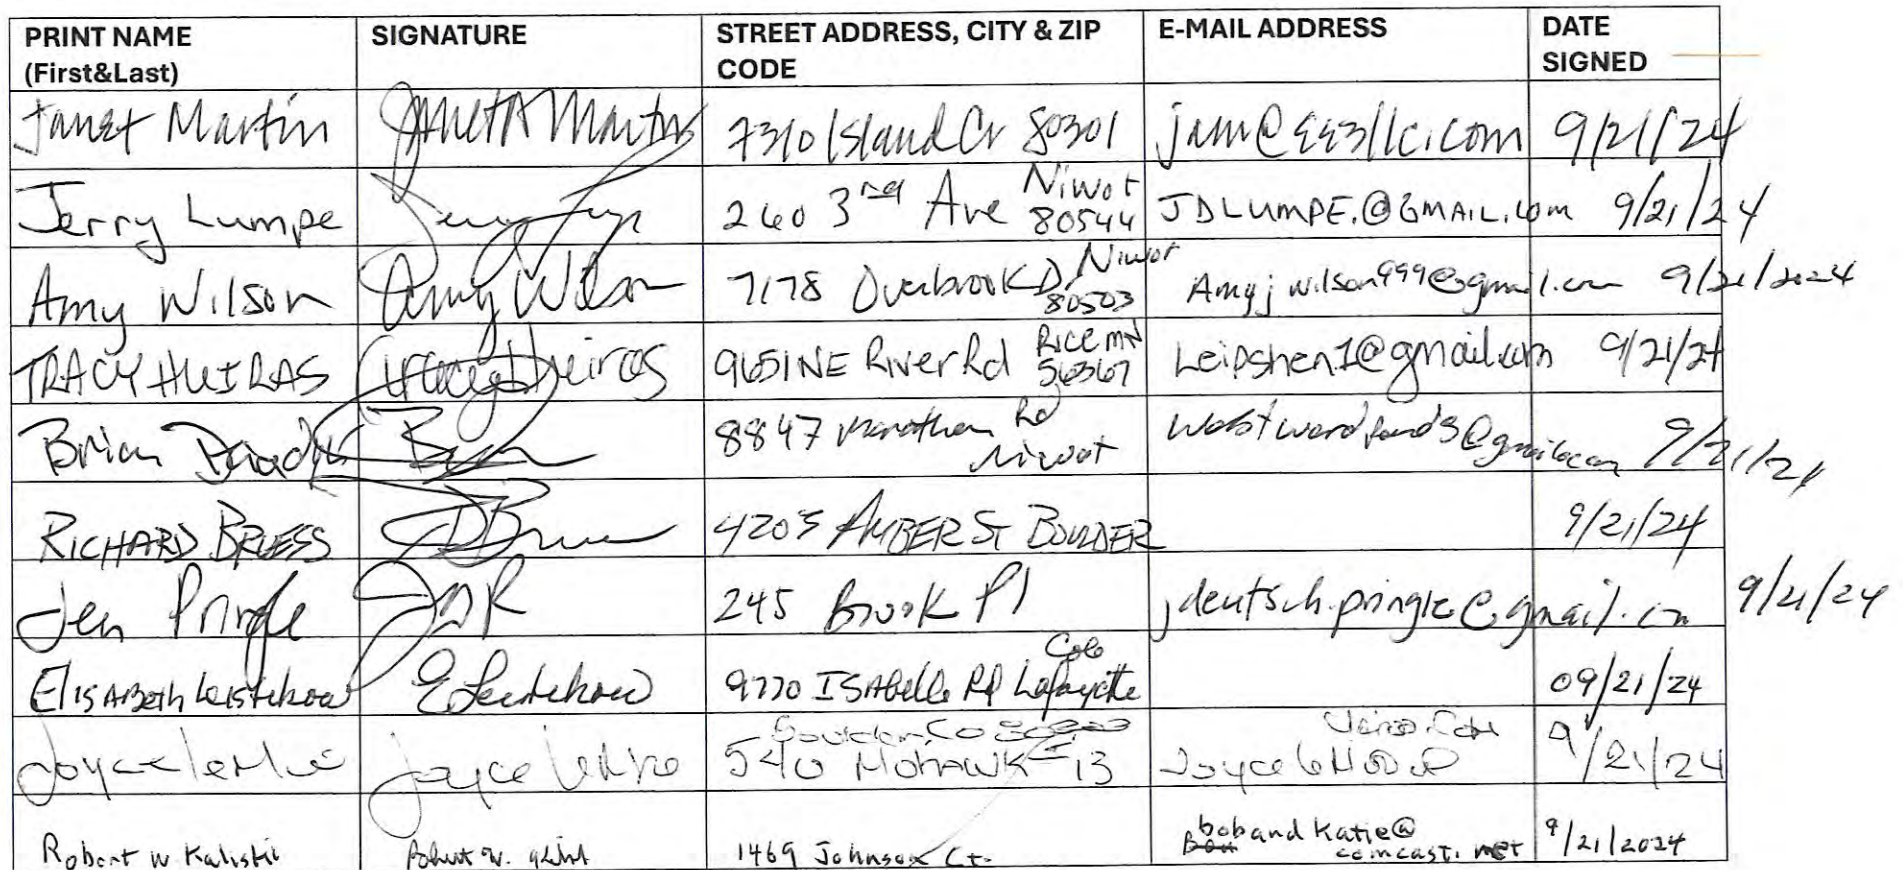 PRINT NAME (First&Last) SIGNATURE STREET ADDRESS, CITY & ZIP CODE E-MAIL ADDRESS DATE SIGNED
Janet Martin Janet A Martin 7310 Island Cr 80301 jam@993llc.com 9/21/24
Jerry Lumpe 260 3rd Ave Niwot 80544 JDLUMPE.@GMAIL.com 9/21/24
Amy Wilson Amy Wilson 7178 Overbrook Dr Niwot 80503 Amyjwilson999@gmail.com 9/21/2024
TRACY HUIRAS Tracy Hueiras 9651 NE River Rd Rice MN 56367 Leipshen1@gmail.com 9/21/24
Brian 8847 Marathon Rd Niwot 9/21/24
RICHARD BRUESS 4205 AMBER ST BOULDER 9/21/24
Jen Pringle 245 Brook Pl jdeutsch.pringle@gmail.cn 9/21/24
Elisabeth Leistikow E Leistikow 9770 ISAbelle Rd Lafayette Colo 09/21/24
Joyce Joyce Boulder, Co 540 Mohawk 13 9/21/24
Robert W Kaliski Robert W. 1469 Johnson Ct. bobandKatie@comcast.net 9/21/2024